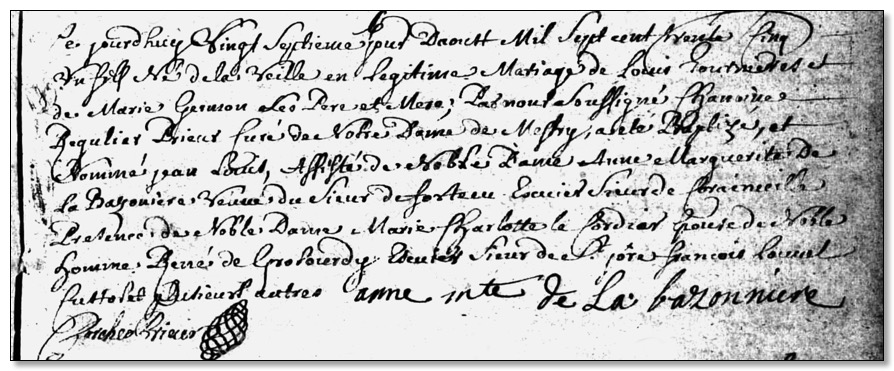 Ce jourdhuy Vingt Septieme jour Daoust Mil Sept cent trente Cinq
Un fils Né de la Veille en legitime Mariage de Louis Tournieres et
de Marie Germon Ses Pere et Mere, Par nous Soussigné Chanoine
Regulier Prieur Curé de Notre Dame de Mestry, a eté Baptizé, et
Nommé jean Louis, Assisté de Noble Dame Anne Marguerite De
La Bazoniere Veuve du Sieur de forteau Ecuier Sieur de
Presence de Noble Dame Marie Charlotte le Cordier Epouse de Noble
homme René de Grosourdy Ecuier Sieur de St jore françois Louvel
Custos et Plusieurs autres anne mte De La bazonniere
Prieur